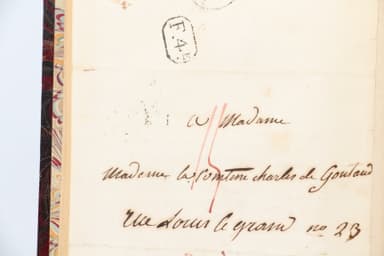 F.45
a Madame
Madame la Comtesse charles de Gontaud
rue Louis le grand no 23